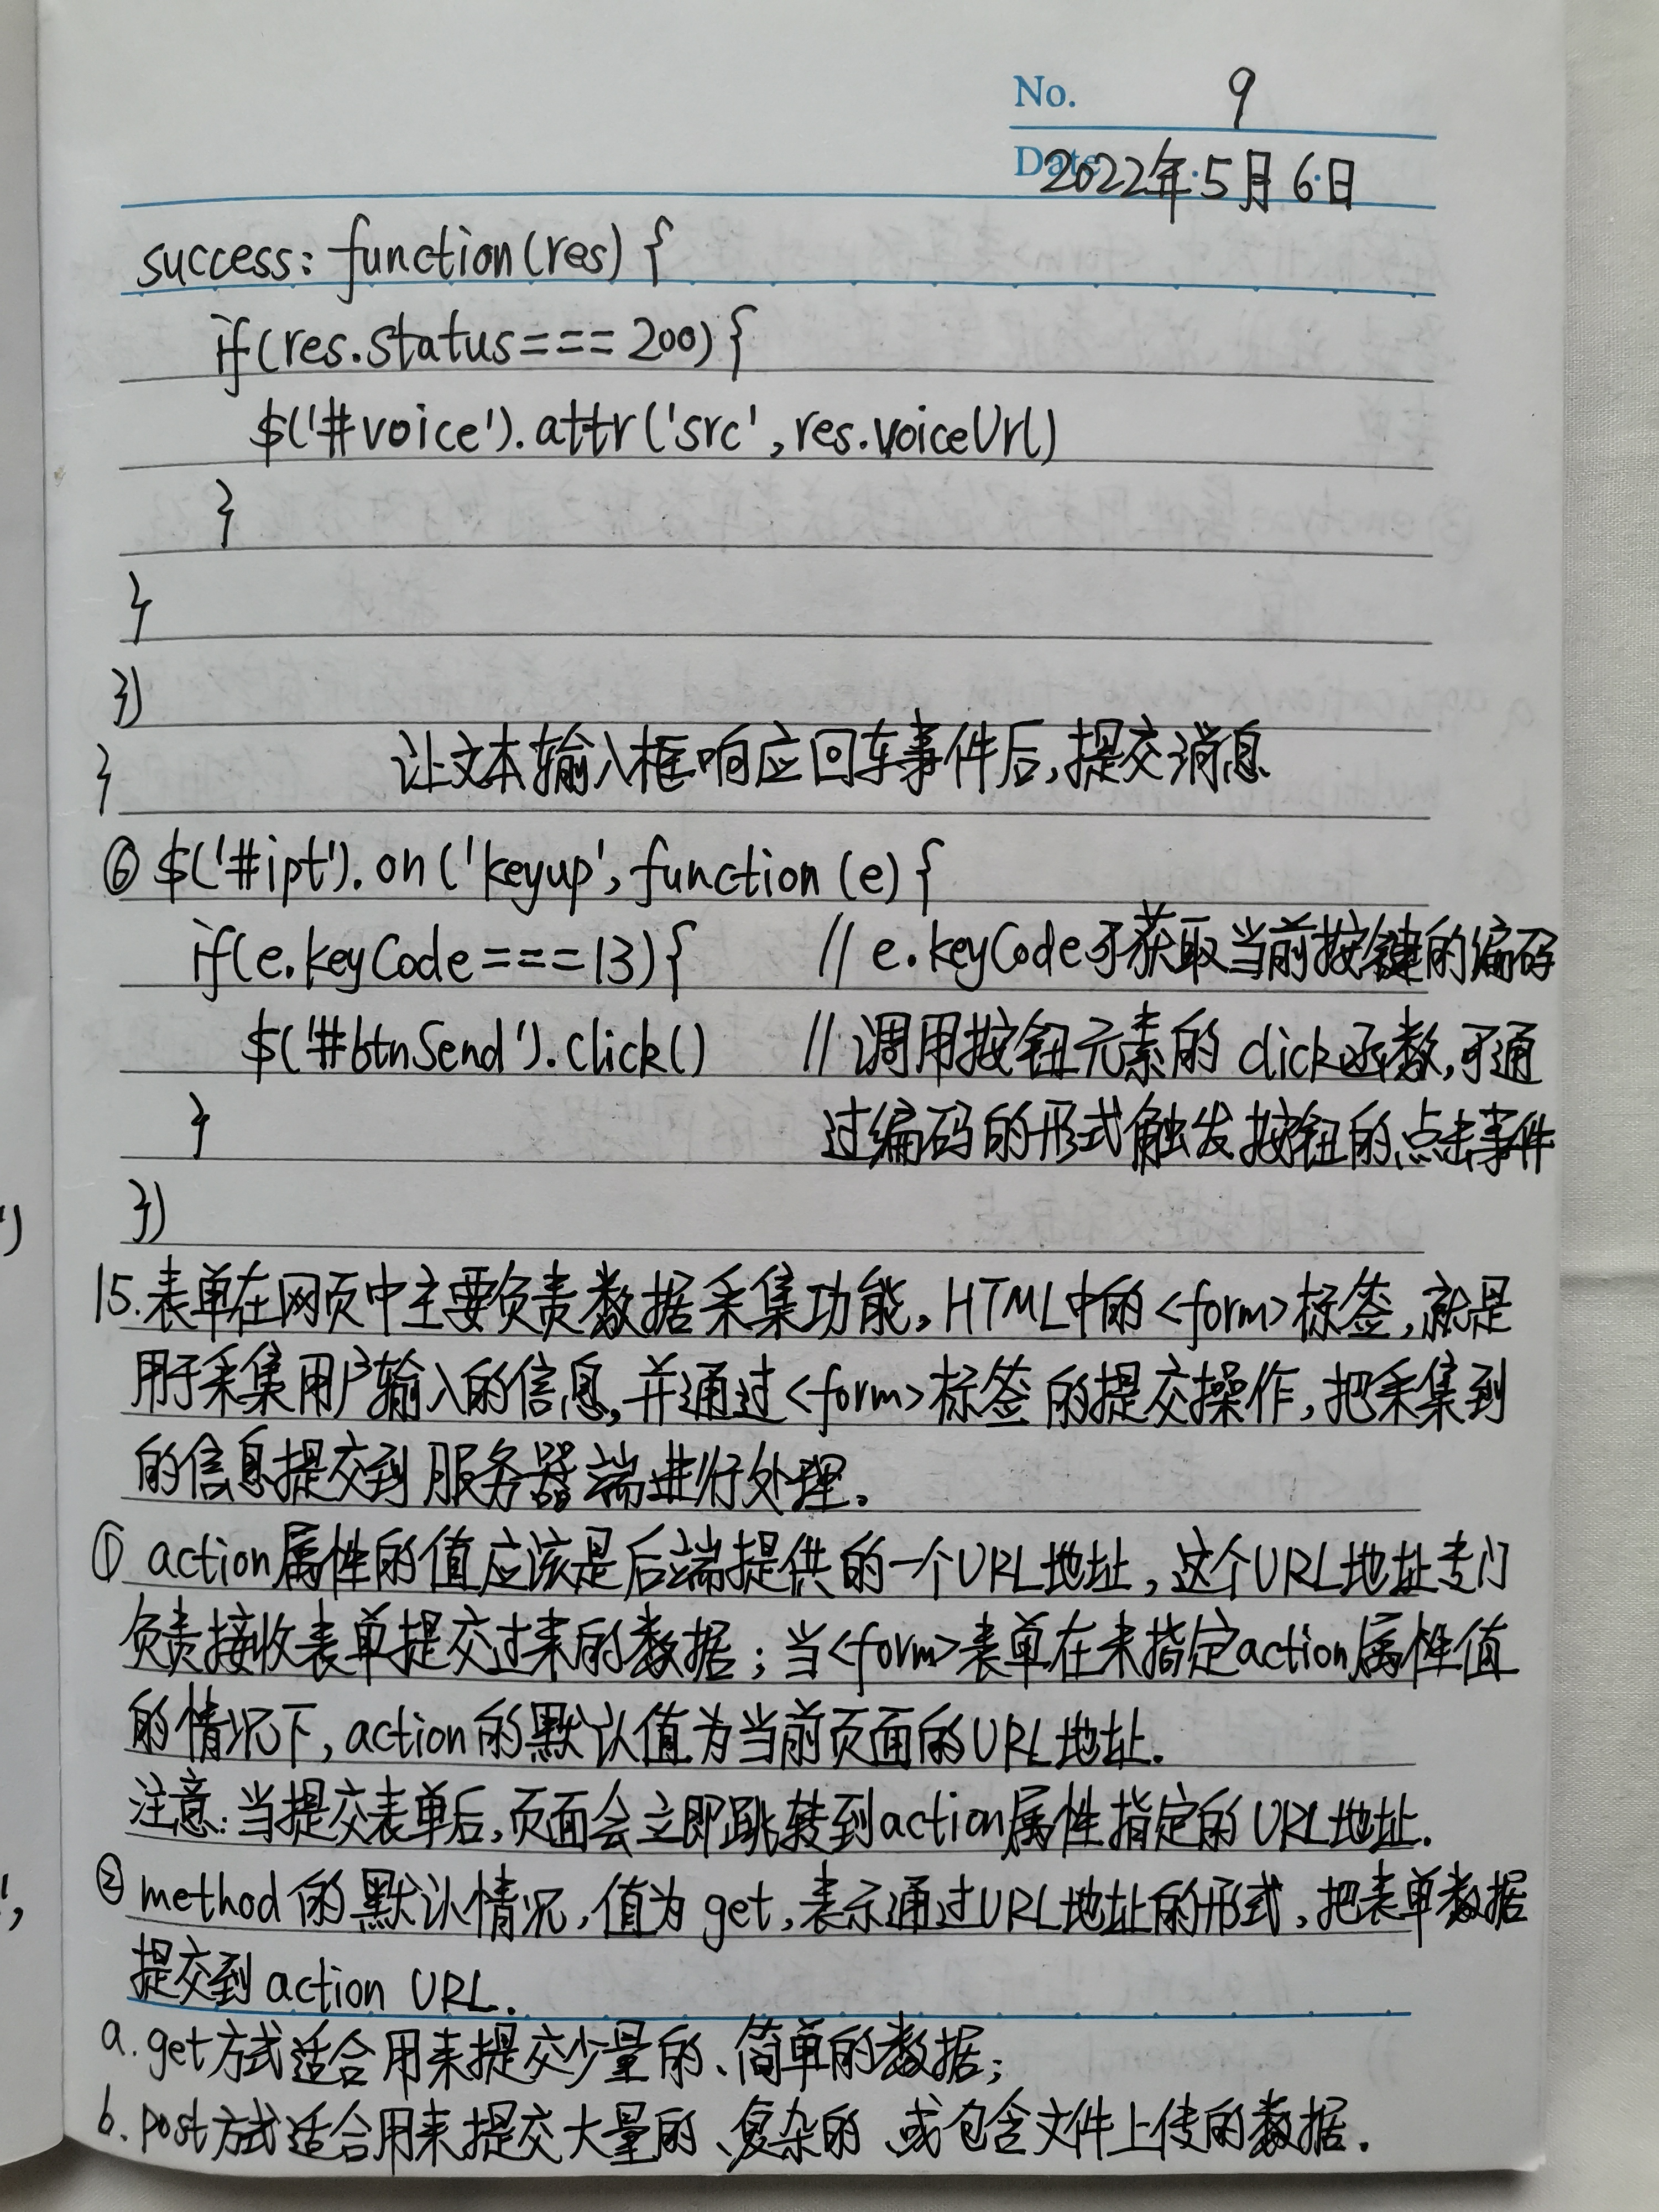 No. 9
Date 2022年5月6日
success: function(res) {
if(res.status=== 200) {
$('#voice').attr('src', res.voiceUrl)
}
}
})
让文本输入框响应回车事件后,提交消息
}
⑥ $('#ipt').on('keyup', function (e) {
if(e.keyCode===13) { // e.keyCode可获取当前按键的编码
$('#btnSend').click() // 调用按钮元素的 click函数,可通
} 过编码的形式触发按钮的点击事件
})
15.表单在网页中主要负责数据采集功能。HTML中的<form>标签,就是
用于采集用户输入的信息,并通过<form>标签的提交操作,把采集到
的信息提交到服务器端进行处理。
① action属性的值应该是后端提供的一个URL地址,这个URL地址专门
负责接收表单提交过来的数据;当<form>表单在未指定action属性值
的情况下,action的默认值为当前页面的URL地址.
注意:当提交表单后,页面会立即跳转到action属性指定的URL地址.
② method的默认情况,值为get,表示通过URL地址的形式,把表单数据
提交到action URL.
a. get方式适合用来提交少量的、简单的数据;
b. post方式适合用来提交大量的、复杂的、或包含文件上传的数据.